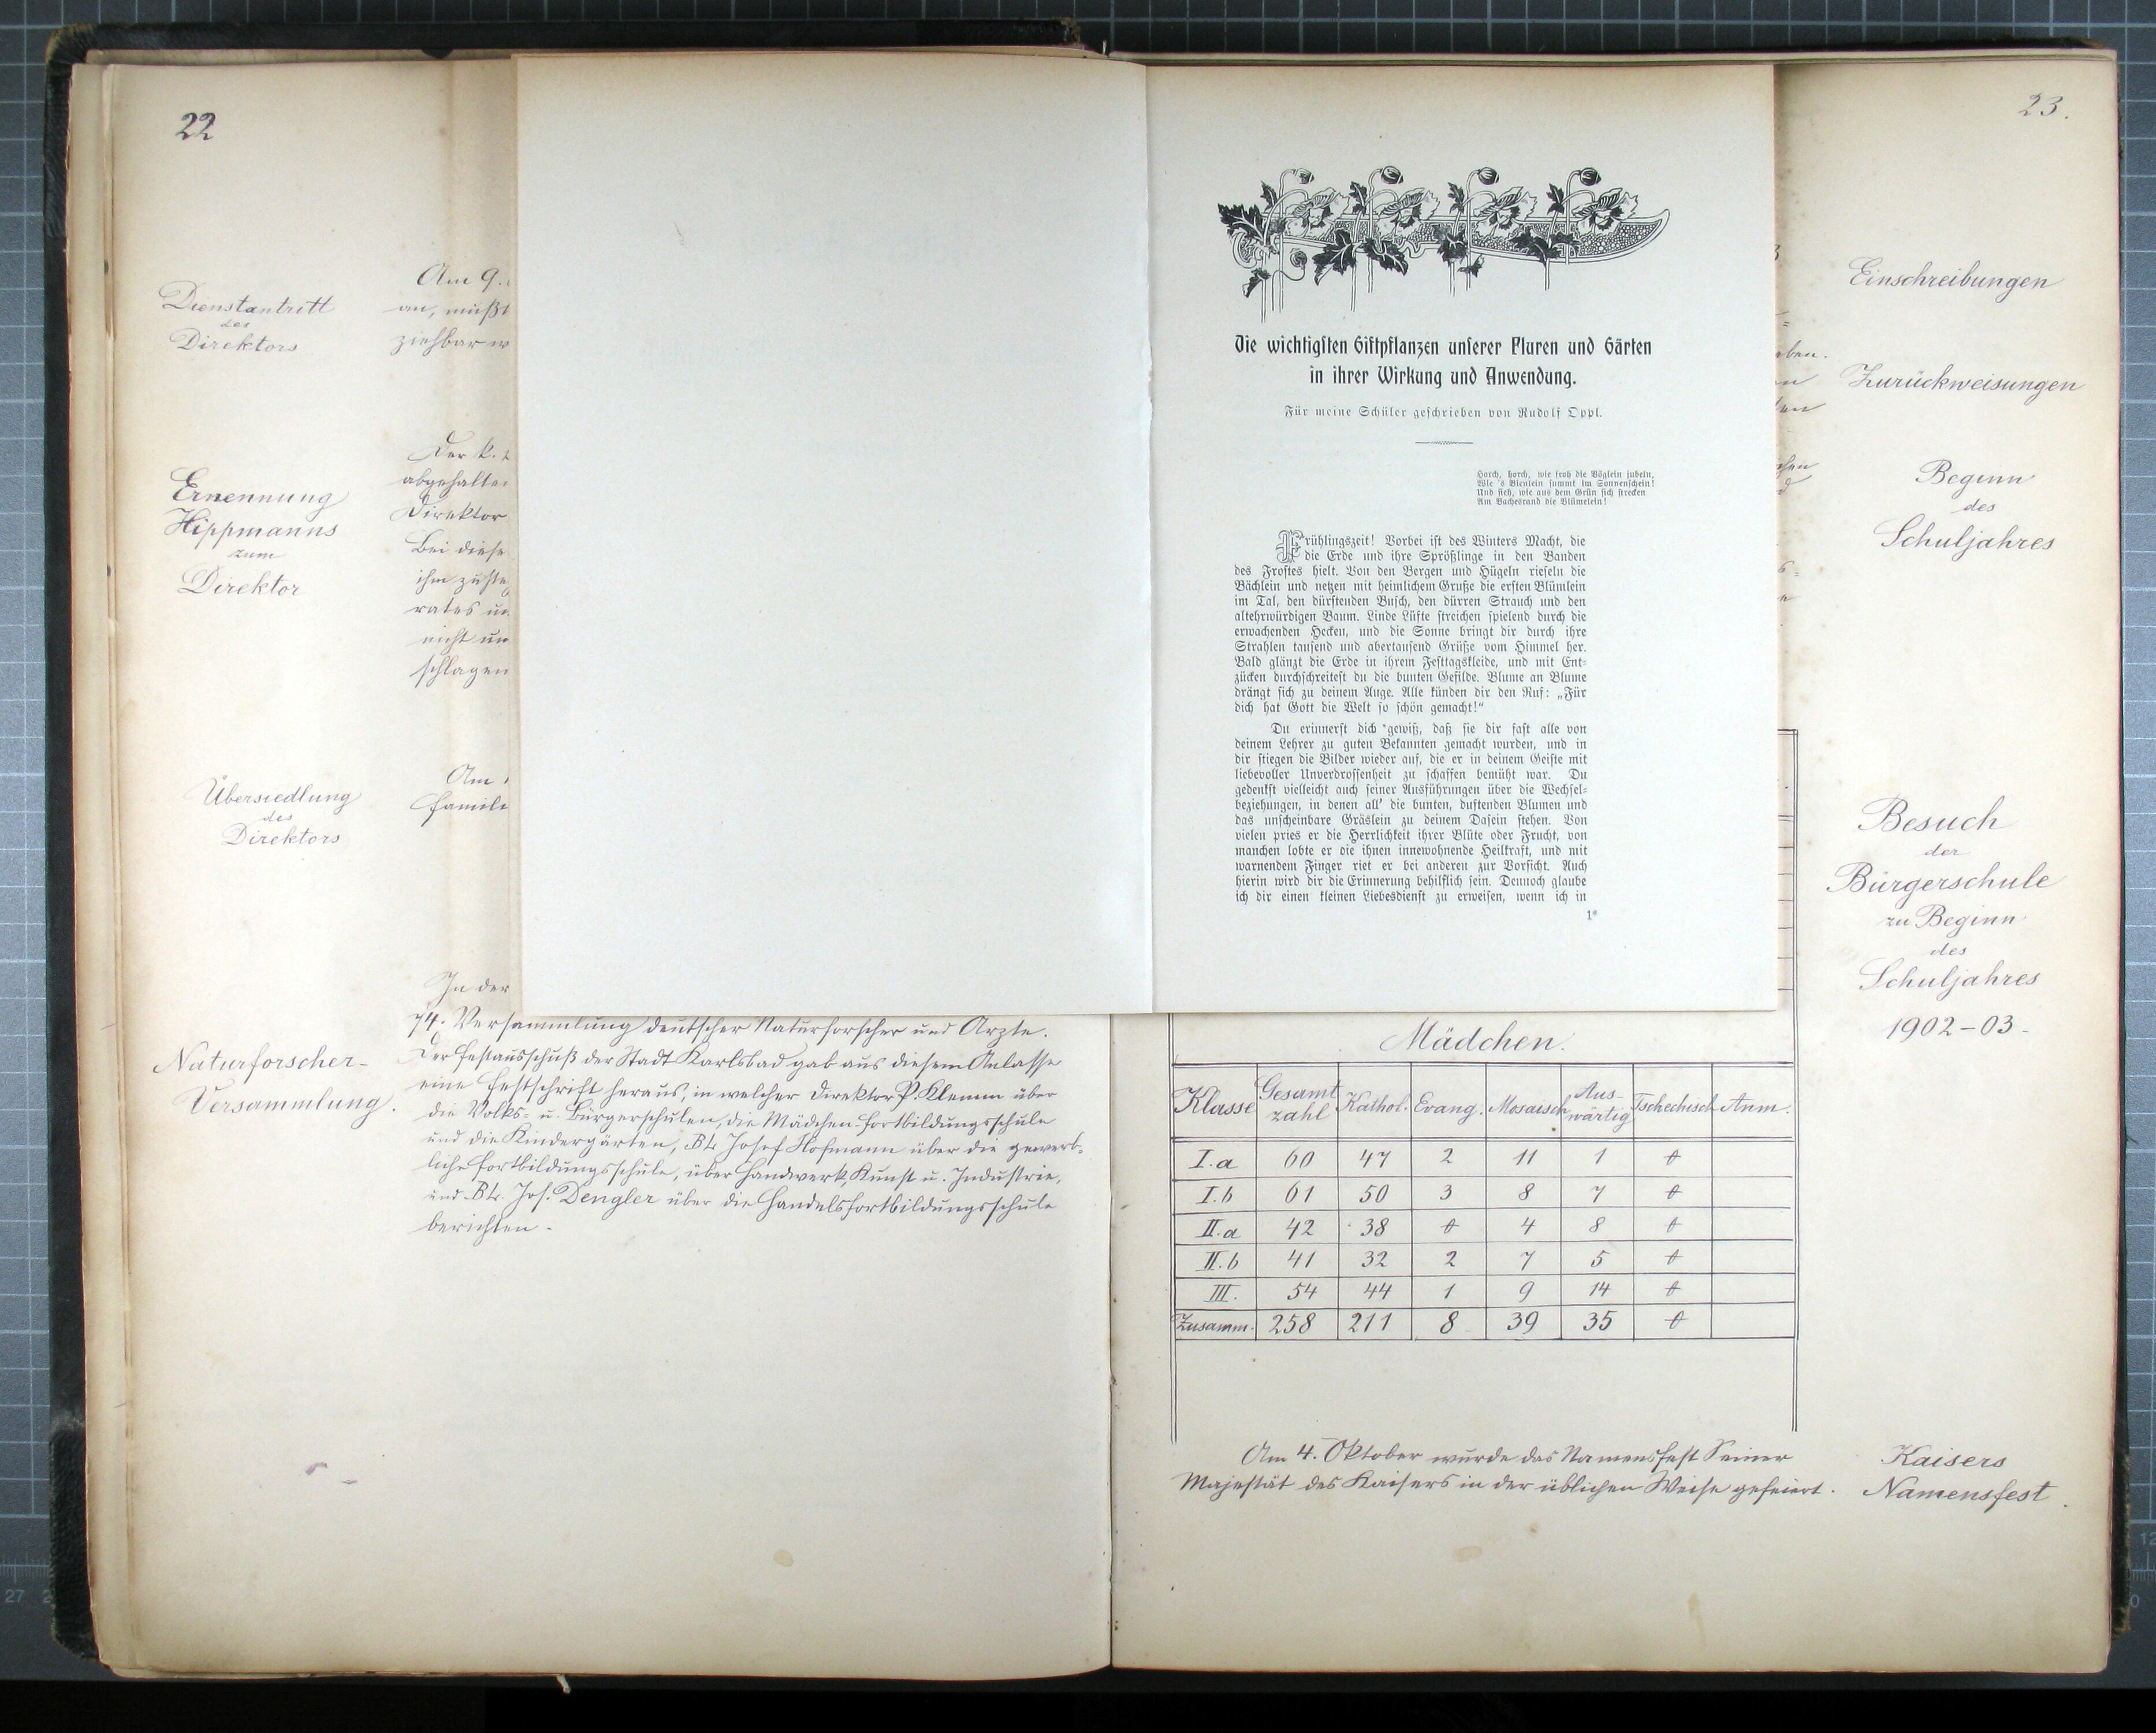 22
Dienstantritt
des
Direktors
Am 9.
an, mußt
ziehbar w
Ernennung
Hippmanns
zum
Direktor
Der k.
abgehalten
Direktor
Bei diese
ihm zuste
rates un
nicht un
schlagen
Übersiedlung
des
Direktors
Am
Famili
Naturforscher-
Versammlung.
In der
74. Versammlung deutscher Naturforscher und Ärzte.
Der Festausschuß der Stadt Karlsbad gab aus diesem Anlasse
eine Festschrift heraus, in welcher Direktor P. Klemm über
die Volks- u. Bürgerschulen, die Mädchen-Fortbildungsschule
und die Kindergärten, BL Josef Hofmann über die gewerb-
liche Fortbildungsschule, über Handwerk, Kunst u. Industrie,
und BL. Jos. Dengler über die Handelsfortbildungsschule
berichten.
Die wichtigsten Giftpflanzen unserer Fluren und Gärten
in ihrer Wirkung und Anwendung.
Für meine Schüler geschrieben von Rudolf Oppl.
Horch, horch, wie froh die Vöglein jubeln,
Wie 's Bienlein summt im Sonnenschein!
Und sieh, wie aus dem Grün sich strecken
Am Bachesrand die Blümelein!
Frühlingszeit! Vorbei ist des Winters Macht, die
die Erde und ihre Sprößlinge in den Banden
des Frostes hielt. Von den Bergen und Hügeln rieseln die
Bächlein und netzen mit heimlichem Gruße die ersten Blümlein
im Tal, den dürstenden Busch, den dürren Strauch und den
altehrwürdigen Baum. Linde Lüfte streichen spielend durch die
erwachenden Hecken, und die Sonne bringt dir durch ihre
Strahlen tausend und abertausend Grüße vom Himmel her.
Bald glänzt die Erde in ihrem Festtagskleide, und mit Ent-
zücken durchschreitest du die bunten Gefilde. Blume an Blume
drängt sich zu deinem Auge. Alle künden dir den Ruf: „Für
dich hat Gott die Welt so schön gemacht!“
Du erinnerst dich gewiß, daß sie dir fast alle von
deinem Lehrer zu guten Bekannten gemacht wurden, und in
dir stiegen die Bilder wieder auf, die er in deinem Geiste mit
liebevoller Unverdrossenheit zu schaffen bemüht war. Du
gedenkst vielleicht auch seiner Ausführungen über die Wechsel-
beziehungen, in denen all' die bunten, duftenden Blumen und
das unscheinbare Gräslein zu deinem Dasein stehen. Von
vielen pries er die Herrlichkeit ihrer Blüte oder Frucht, von
manchen lobte er die ihnen innewohnende Heilkraft, und mit
warnendem Finger riet er bei anderen zur Vorsicht. Auch
hierin wird dir die Erinnerung behilflich sein. Dennoch glaube
ich dir einen kleinen Liebesdienst zu erweisen, wenn ich in
1*
23.
Einschreibungen
Zurückweisungen
Beginn
des
Schuljahres
Besuch
der
Bürgerschule
zu Beginn
des
Schuljahres
1902-03.
Mädchen.
Klasse Gesamt zahl Kathol. Evang. Mosaisch Aus- wärtig Tschechisch Anm.
I.a 60 47 2 11 1 0
I.b 61 50 3 8 7 0
II.a 42 38 0 4 8 0
II.b 41 32 2 7 5 0
III. 54 44 1 9 14 0
Zusamm. 258 211 8 39 35 0
Am 4. Oktober wurde das Namensfest Seiner
Majestät des Kaisers in der üblichen Weise gefeiert.
Kaisers
Namensfest